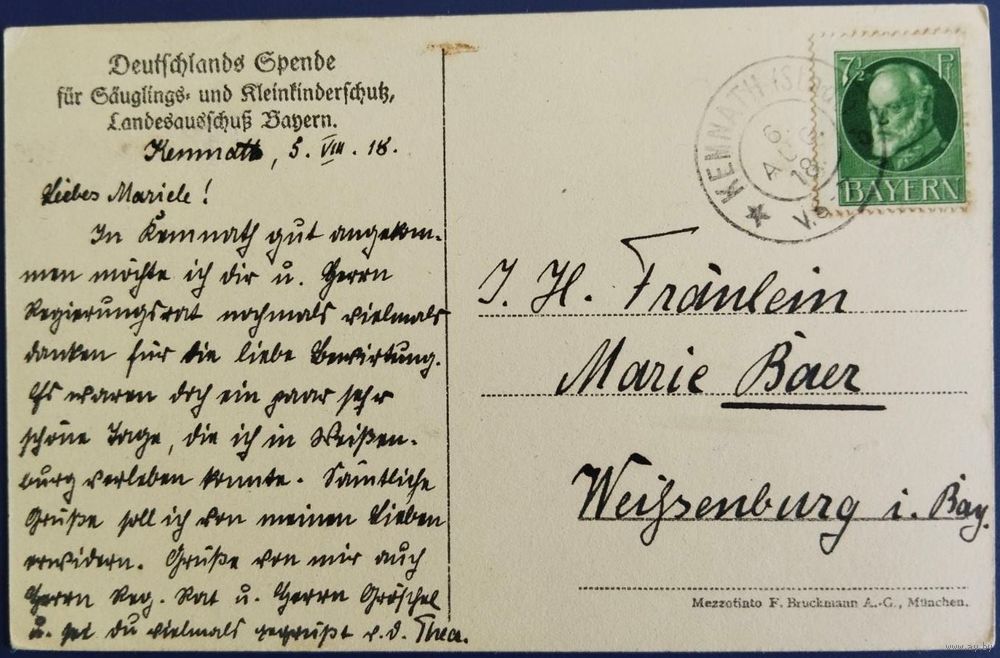 Deutschlands Spende
für Säuglings- und Kleinkinderschutz,
Landesausschuß Bayern.
Kemnath, 5. VIII. 18.
Liebes Mariele!
In Kemnath gut angekom-
men möchte ich dir u. Herrn
Regierungsrat nochmals vielmals
danken für die liebe Bewirtung.
Es waren doch ein paar sehr
schöne Tage, die ich in Weißen-
burg verleben konnte. Sämtliche
Grüße soll ich von meinen Lieben
erwidern. Grüße von mir auch
Herrn Reg. Rat u. Herrn Gröschel
u. sei du vielmals gegrüßt v. d. Thea.
KEMNATH
6
AUG.
18
7½ Pf
BAYERN
J. H. Fräulein
Marie Baer
Weißenburg i. Bay.
Mezzotinto F. Bruckmann A.-G., München.
www.ay.by